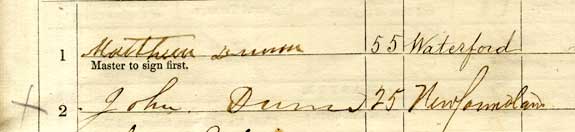 1 Matthew Dunn 55 Waterford
Master to sign first.
2 John Dunn 25 Newfoundland